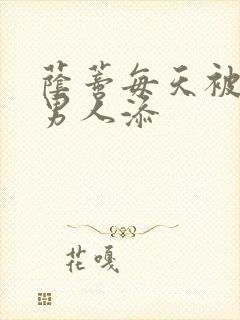 蔭蒂每天被
男人添
花嘎